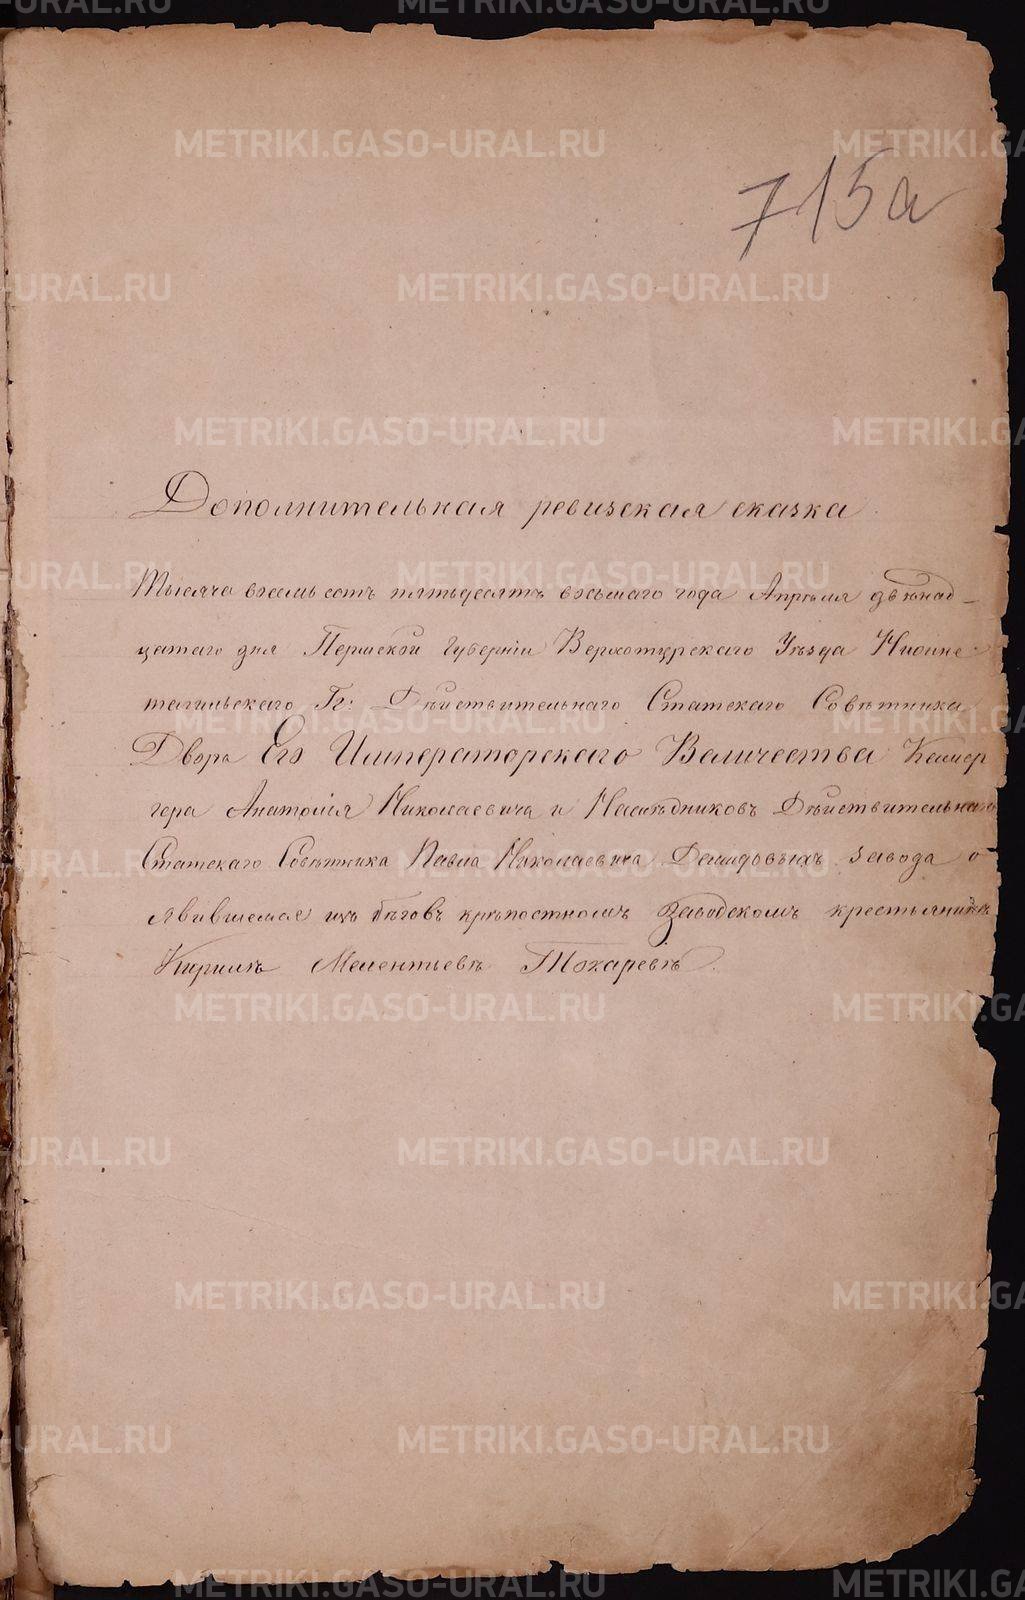 715а
Дополнительная ревизская сказка
Тысяча восемь сотъ пятьдесятъ восьмаго года Апрѣля двѣнад-
цатаго дня Пермской Губерніи Верхотурскаго Уѣзда Нижне-
тагильскаго Гг: Дѣйствительнаго Статскаго Совѣтника
Двора Его Императорскаго Величества Камер
гера Анатолія Николаевича и Наслѣдниковъ Дѣйствительнаго
Статскаго Совѣтника Павла Николаевича Демидовыхъ завода о
явившемся изъ бѣговъ крѣпостномъ Заводскомъ крестьянинѣ
Кирилѣ Мелентьевѣ Токаревѣ.
METRIKI.GASO-URAL.RU